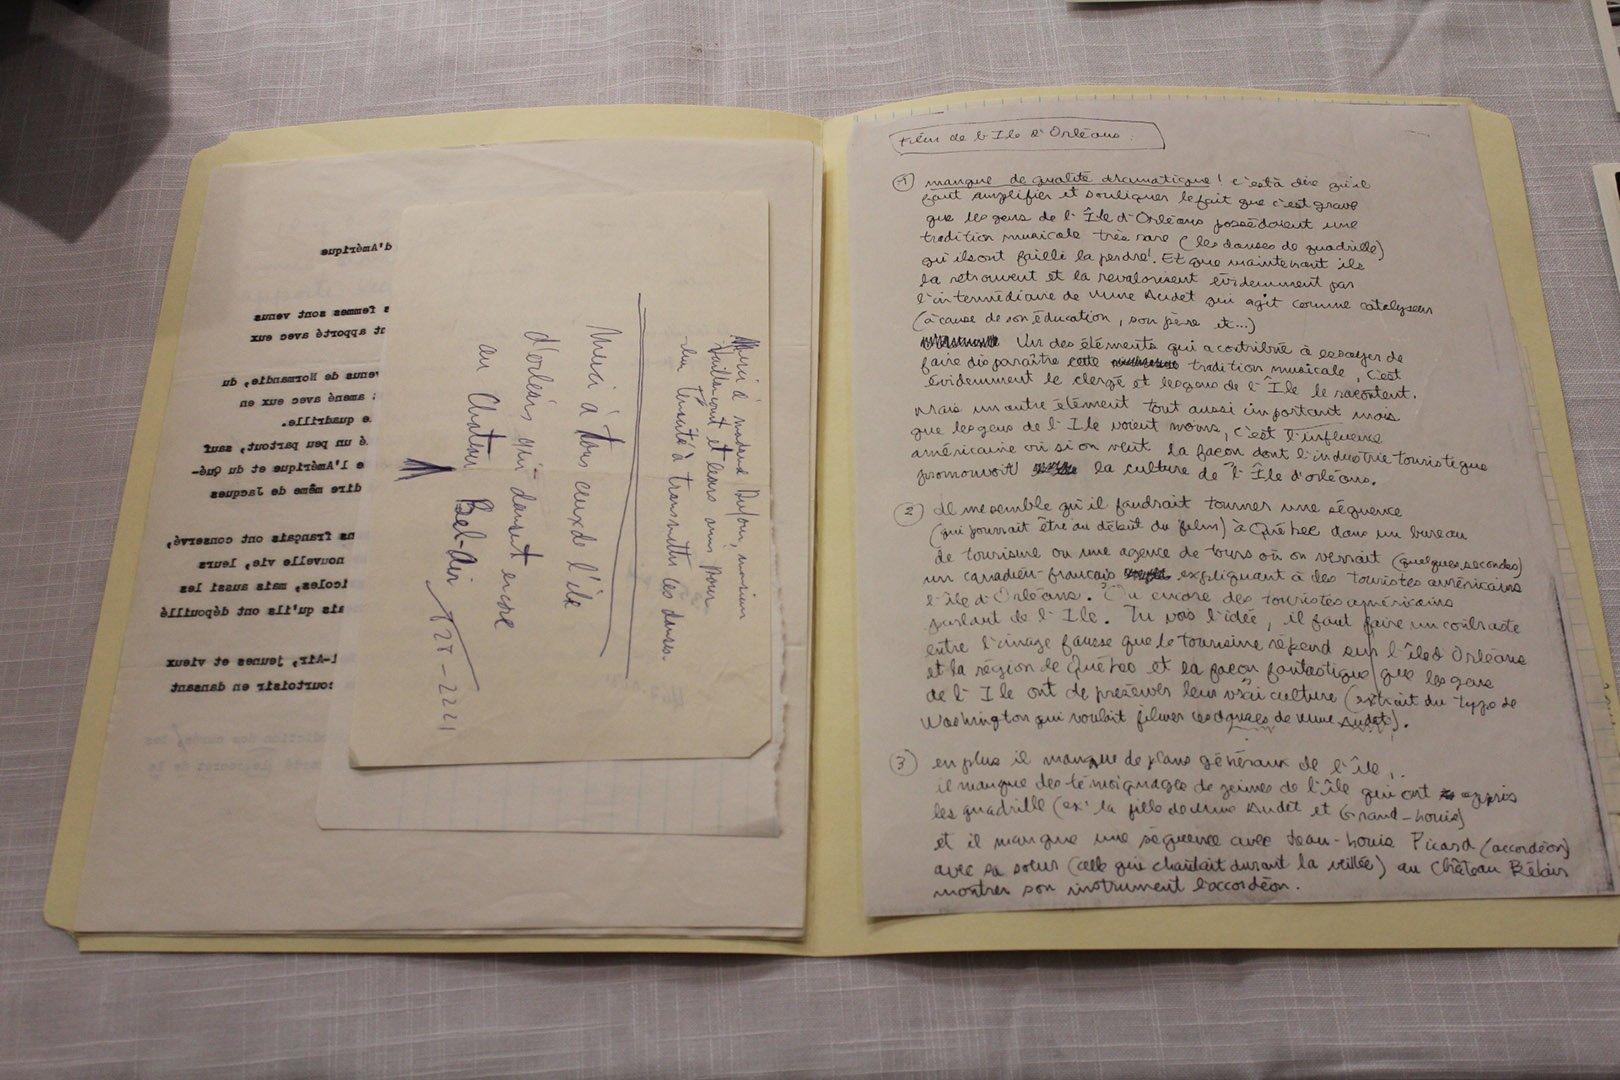 d'Amérique
s femmes sont venus
nt apporté avec eux
venus de Normandie, du
amené avec eux en
e quadrille.
é un peu partout, sauf
e l'Amérique et du Qué-
dire même de Jacques
ns français ont conservé,
nouvelle vie, leurs
icoles, mais aussi les
ais qu'ils ont dépouillé
l-Air, jeunes et vieux
courtoisir en dansant
Merci à madame Dufour, monsieur
Vaillancourt et leurs amis pour
leur ténacité à transmettre les danses.
Merci à tous ceux de l'île
d'orléans qui dansent encore
au Chateau Bel-Air
828-2221
Film de l'Ile d'Orléans.
1 manque de qualité dramatique! c'est à dire qu'il
faut amplifier et souligner le fait que c'est grave
que les gens de l'Île d'Orléans possédaient une
tradition musicale très rare (les danses de quadrille)
qu'ils ont failli la perdre! Et que maintenant ils
la retrouvent et la revalorisent évidemment par
l'intermédiaire de Mme Audet qui agit comme catalyseur
(à cause de son éducation, son père et...)
Un des éléments qui a contribué à essayer de
faire disparaître cette tradition musicale, c'est
évidemment le clergé et les gens de l'Île le racontent.
Mais un autre élément tout aussi important mais
que les gens de l'Ile voient moins, c'est l'influence
américaine ou si on veut la façon dont l'industrie touristique
promouvoit la culture de l'Île d'orléans.
2 Il me semble qu'il faudrait tourner une séquence
(qui pourrait être au début du film) à Québec dans un bureau
de tourisme ou une agence de tours où on verrait (quelques secondes)
un canadien-français expliquant à des touristes américains
l'île d'Orléans. Ou encore des touristes américains
parlant de l'Ile. Tu vois l'idée, il faut faire un contraste
entre l'image fausse que le tourisme répend sur l'île d'Orléans
et la région de Québec et la façon fantastique que les gens
de l'Ile ont de préserver leur vrai culture (extrait du type de
Washington qui voulait filmer les danses de Mme Audet).
3 en plus il manque de plans généraux de l'île,
il manque des témoignages de jeunes de l'île qui ont appris
les quadrille (ex: la fille de Mme Audet et Grand-Louis)
et il manque une séquence avec Jean-Louis Picard (accordéon)
avec sa soeur (celle qui chantait durant la veillée) au Château Bélair
montrer son instrument l'accordéon.